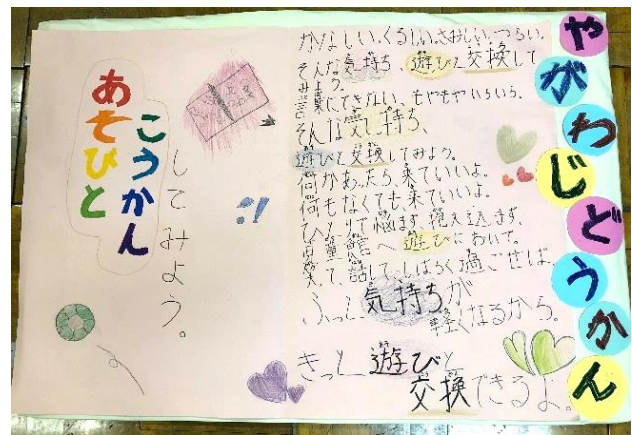 やがわじどうかん
かなしい。くるしい。さみしい。つらい。
そんな気持ち、遊びと交換して
みよう。
言葉にできない、もやもやいらいら。
そんな気持ち、
遊びと交換してみよう。
何かあったら、来ていいよ。
何もなくても来ていいよ。
ひとりで悩まず、抱え込まず。
児童館へ遊びにおいで。
笑って、話して、しばらく過ごせば、
ふっと気持ちが
軽くなるから。
きっと遊びと
交換できるよ。
あそびと
こうかん
してみよう。